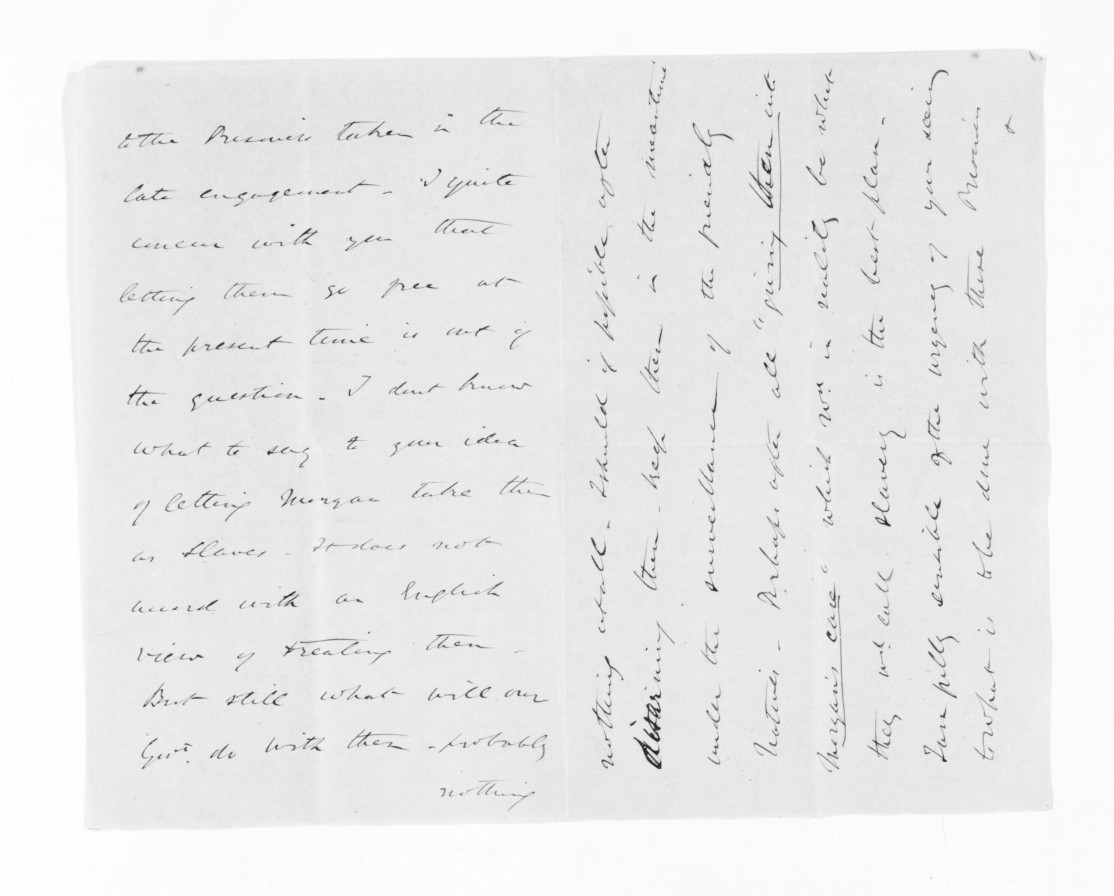 to the Prisoners taken in the
late engagement - I quite
concur with you that
letting them go free at
the present time is out of
the question - I dont know
what to say to your idea
of letting Morgan take them
as slaves - It does not
accord with an English
view of treating them -
But still what will our
Govt. do with them - probably
nothing
nothing at all - I should if possible after
disarming them - keep them in the meantime
under the surveillance of the friendly
Natives - Perhaps after all "giving them into
Morgan's care" which wd. in reality be what
they wd. call slavery is the best plan -
I am fully sensible of the urgency of your seeing
to what is to be done with these Prisoners
&